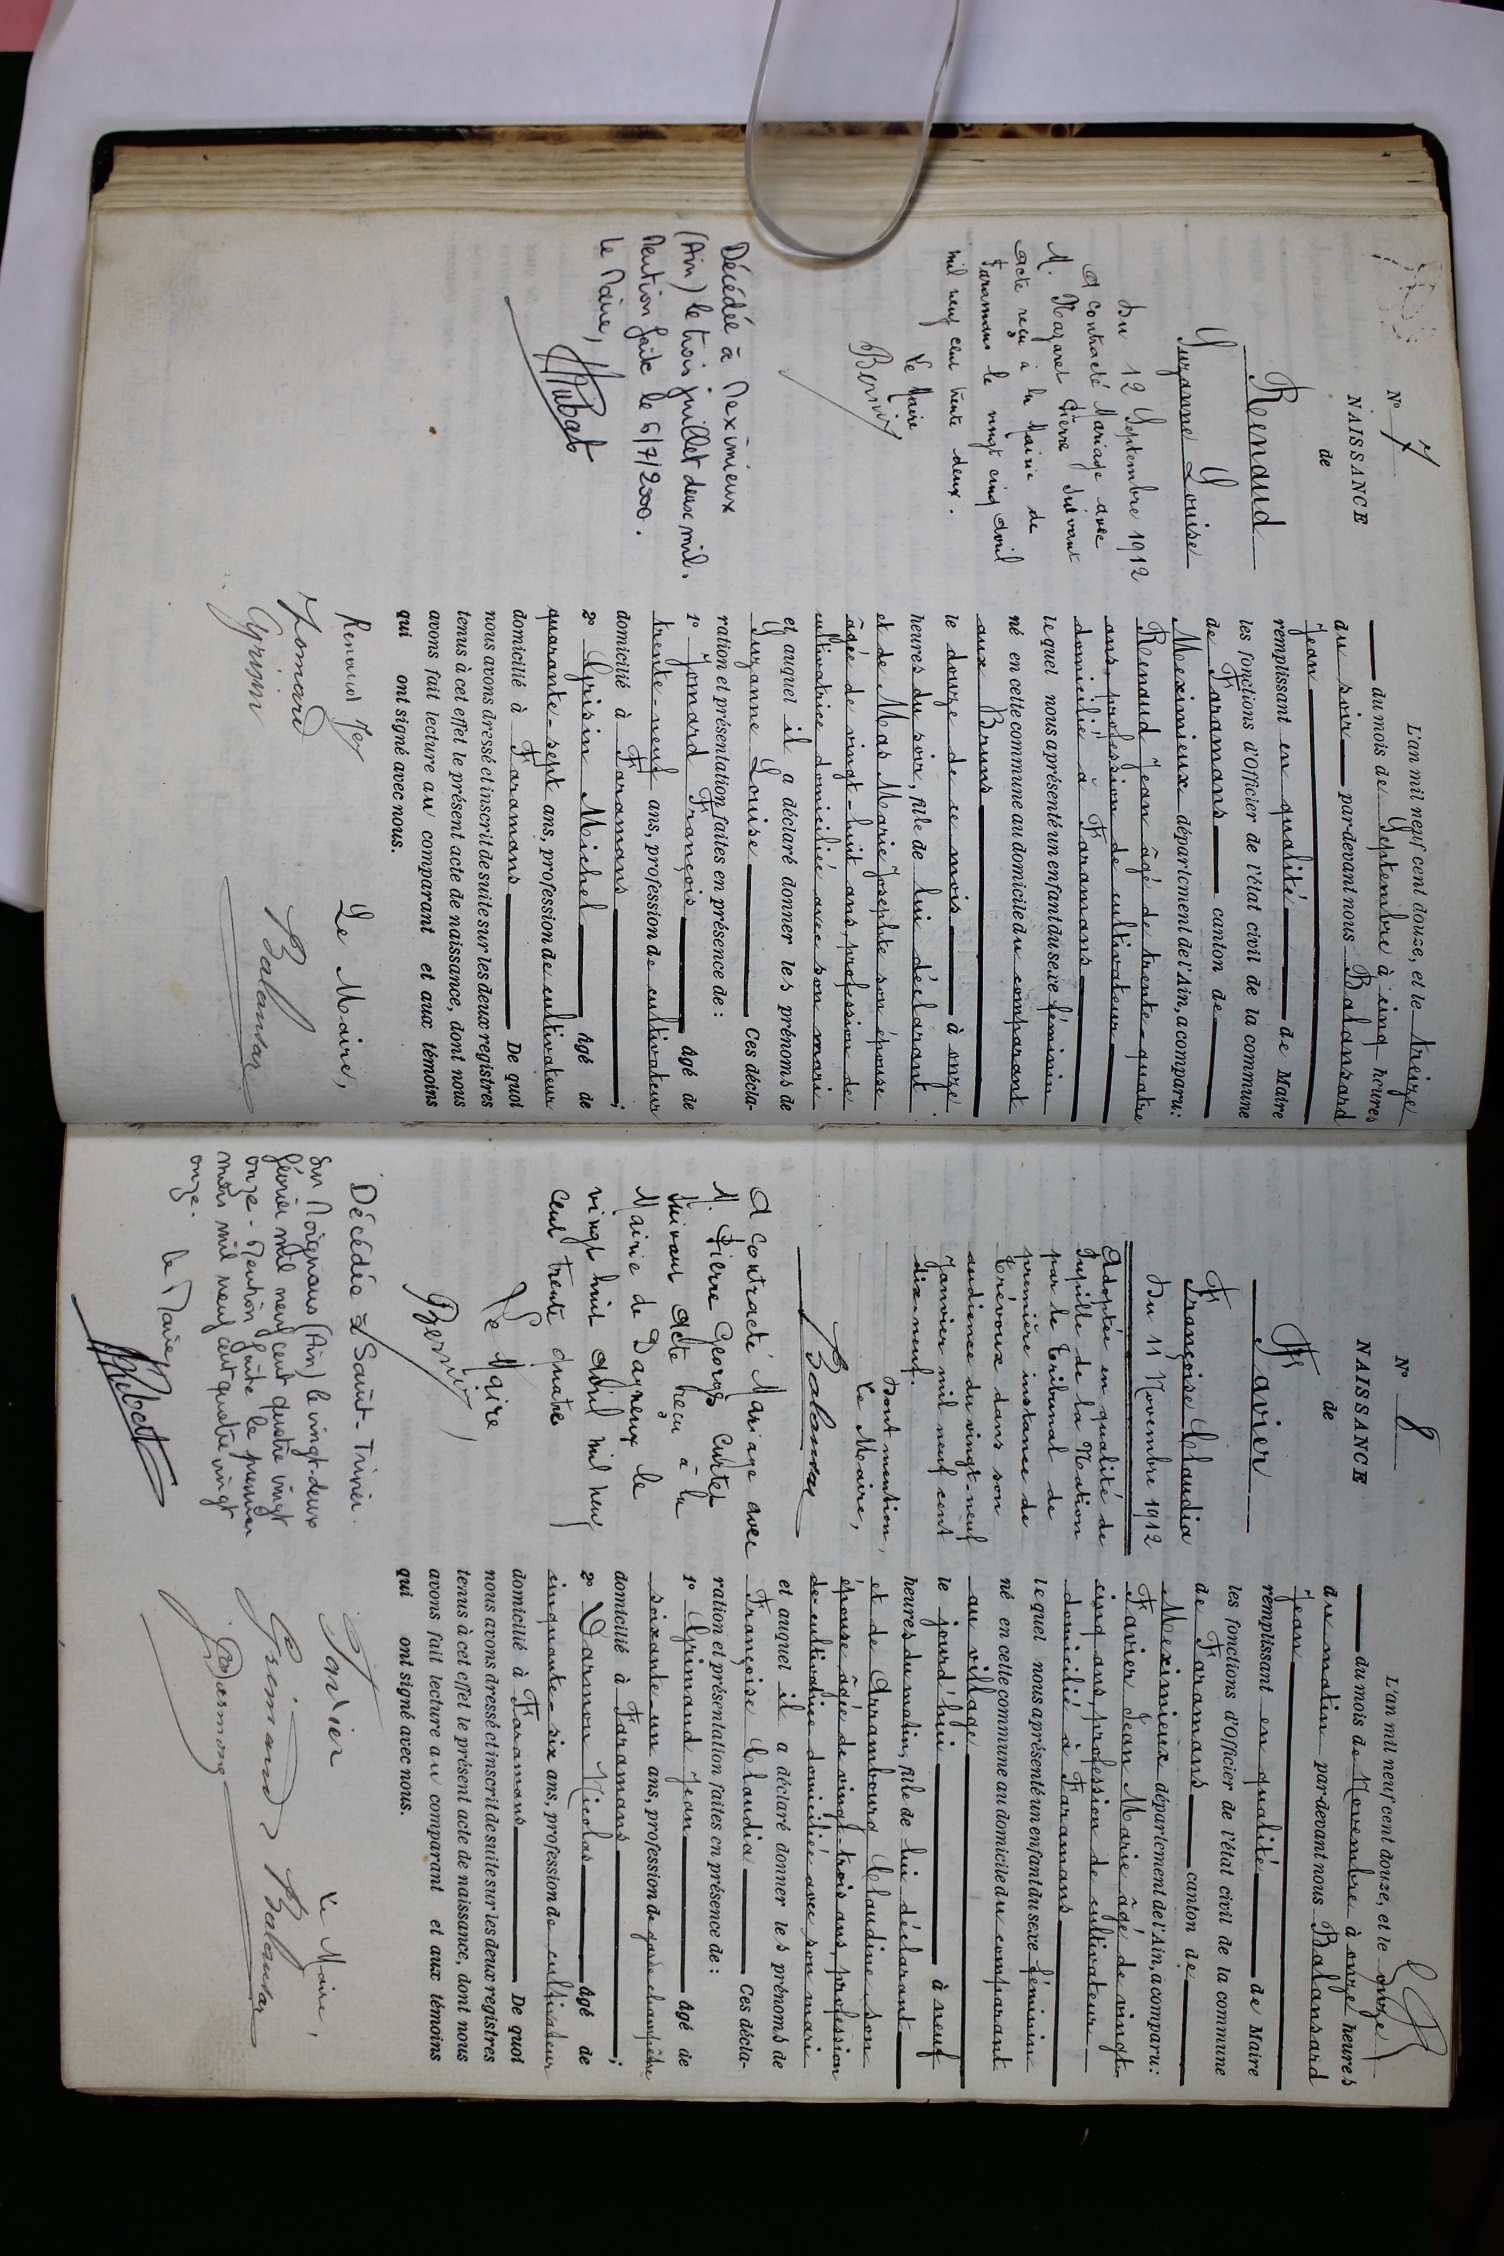 N° 7
NAISSANCE
de
Renaud
Suzanne Louise
Du 12 Septembre 1912
a contracté Mariage avec
M. Nazaret Pierre Suivant
acte reçu à la Mairie de
Faramans le vingt cinq Avril
mil neuf cent trente deux.
Le Maire
Décédée à Meximieux
(Ain) le trois juillet deux mil.
Mention faite le 6/7/2000.
Le Maire,
L'an mil neuf cent douze, et le treize
du mois de Septembre à cinq heures
du soir par-devant nous Balansard
Jean
remplissant en qualité de Maire
les fonctions d'Officier de l'état civil de la commune
de Faramans canton de
Meximieux département de l'Ain, a comparu:
Renaud Jean âgé de trente-quatre
ans, profession de cultivateur
domicilié à Faramans
lequel nous a présenté un enfant du sexe féminin
né en cette commune au domicile du comparant
aux Bruns
le douze de ce mois à onze
heures du soir, fille de lui déclarant
et de Mas Marie Josephte son épouse
âgée de vingt-huit ans, profession de
cultivatrice domiciliée avec son mari
et auquel il a déclaré donner les prénoms de
Suzanne Louise Ces décla-
ration et présentation faites en présence de:
1° Jomard François âgé de
trente-neuf ans, profession de cultivateur
domicilié à Faramans;
2° Grisin Michel âgé de
quarante-sept ans, profession de cultivateur
domicilié à Faramans De quoi
nous avons dressé et inscrit de suite sur les deux registres
tenus à cet effet le présent acte de naissance, dont nous
avons fait lecture au comparant et aux témoins
qui ont signé avec nous.
Renaud Le Maire,
Jomard Balansard
N° 8
NAISSANCE
de
Favier
Françoise Claudia
Du 11 Novembre 1912
Adoptée en qualité de
Pupille de la Nation
par le Tribunal de
première instance de
Trévoux dans son
audience du vingt-neuf
Janvier mil neuf cent
dix-neuf.
Dont mention,
Le Maire,
Balansard
A contracté Mariage avec
M. Pierre Georges Curtet
suivant acte reçu à la
Mairie de Dagneux le
vingt huit Avril mil neuf
cent trente quatre
Le Maire
Décédée à Saint-Trivier
sur Moignans (Ain) le vingt-deux
février mil neuf cent quatre vingt
onze - Mention faite le premier
mars mil neuf cent quatre vingt
onze. Le Maire,
L'an mil neuf cent douze, et le onze
du mois de Novembre à onze heures
du matin par-devant nous Balansard
Jean
remplissant en qualité de Maire
les fonctions d'Officier de l'état civil de la commune
de Faramans canton de
Meximieux département de l'Ain, a comparu:
Favier Jean Marie âgé de vingt-
cinq ans, profession de cultivateur
domicilié à Faramans
lequel nous a présenté un enfant du sexe féminin
né en cette commune au domicile du comparant
au village
le jourd'hui à neuf
heures du matin, fille de lui déclarant
et de Arrambourg Claudine son
épouse âgée de vingt-trois ans, profession
de cultivatrice domiciliée avec son mari
et auquel il a déclaré donner les prénoms de
Françoise Claudia Ces décla-
ration et présentation faites en présence de:
1° Grimand Jean âgé de
soixante-un ans, profession de garde champêtre
domicilié à Faramans;
2° Darmon Nicolas âgé de
cinquante-six ans, profession de cultivateur
domicilié à Faramans De quoi
nous avons dressé et inscrit de suite sur les deux registres
tenus à cet effet le présent acte de naissance, dont nous
avons fait lecture au comparant et aux témoins
qui ont signé avec nous.
Favier Le Maire,
Grimand Balansard